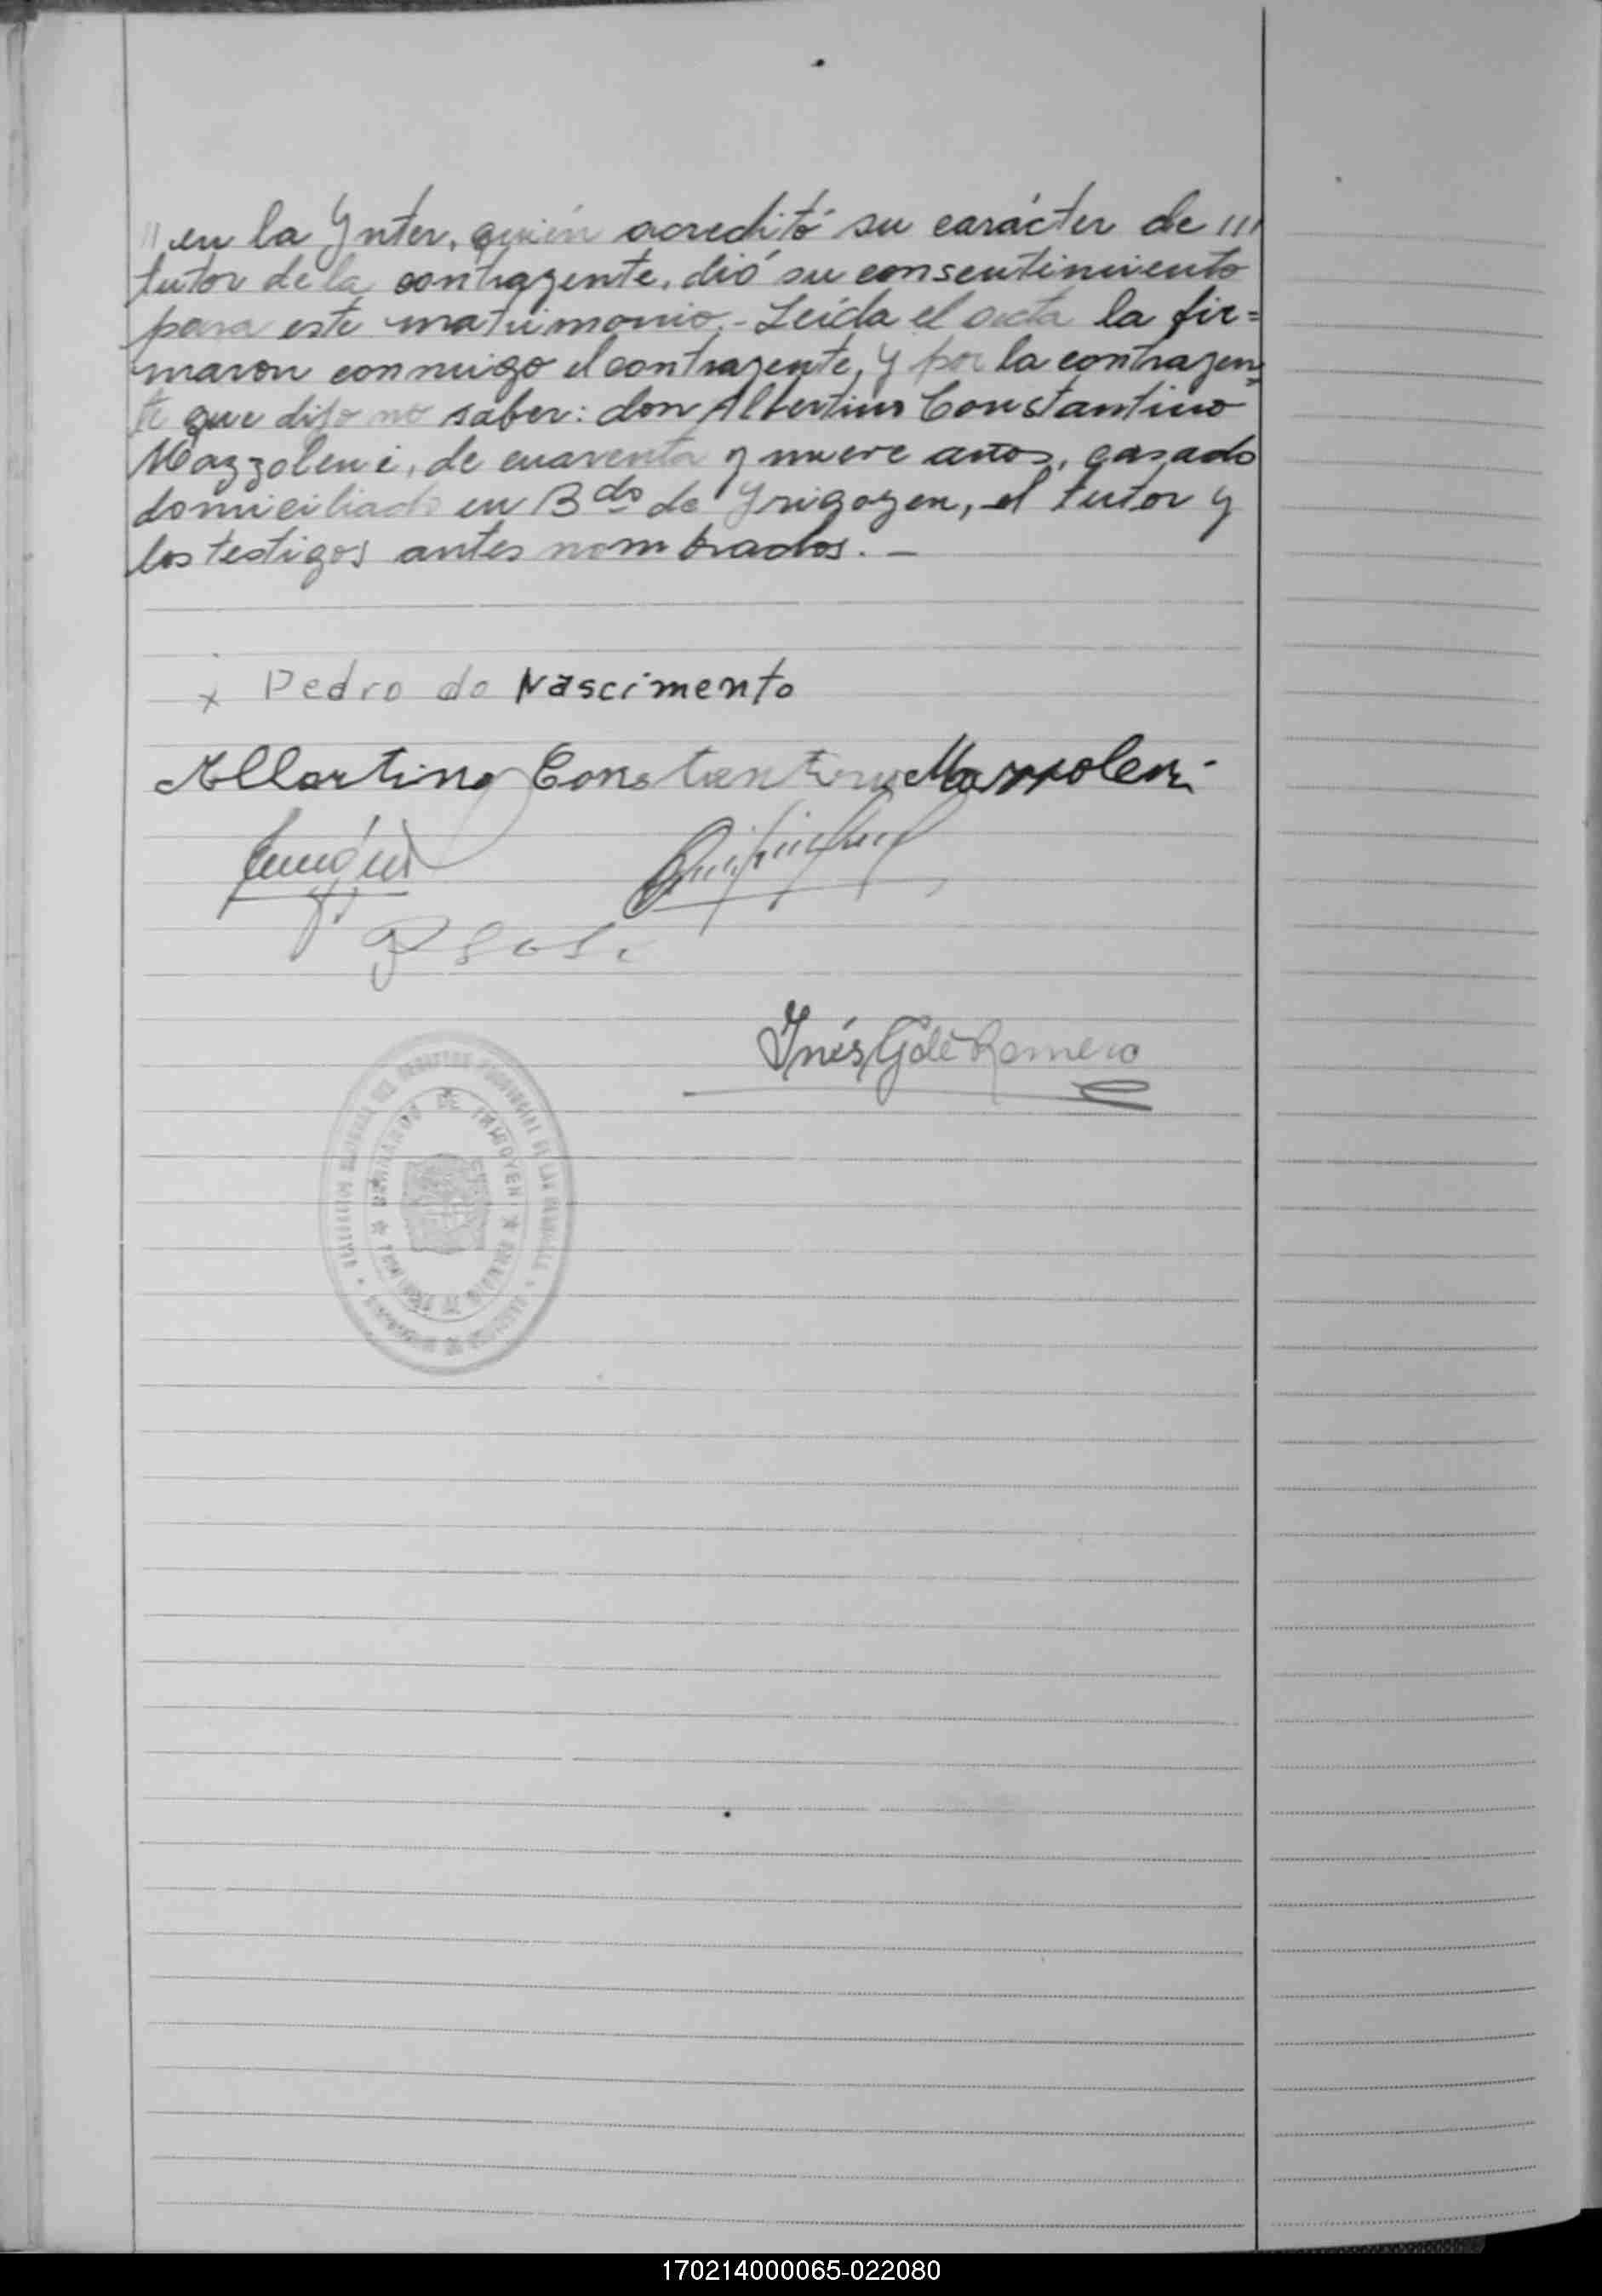 " en la Ynter, quién acreditó su carácter de ///
tutor de la contrayente, dió su consentimiento
para este matrimonio.- Leída el acta la fir=
maron conmigo el contrayente, y por la contrayen=
te que dijo no saber: don Albertino Constantino
Mazzoleni, de cuarenta y nueve años, casado
domiciliado en Bdo de Yrigoyen, el tutor y
los testigos antes nombrados. -
x Pedro do Nascimento
Albertino Constantino Mazzoleni
Inés G de Romero
BERNARDO DE IRIGOYEN
170214000065-022080